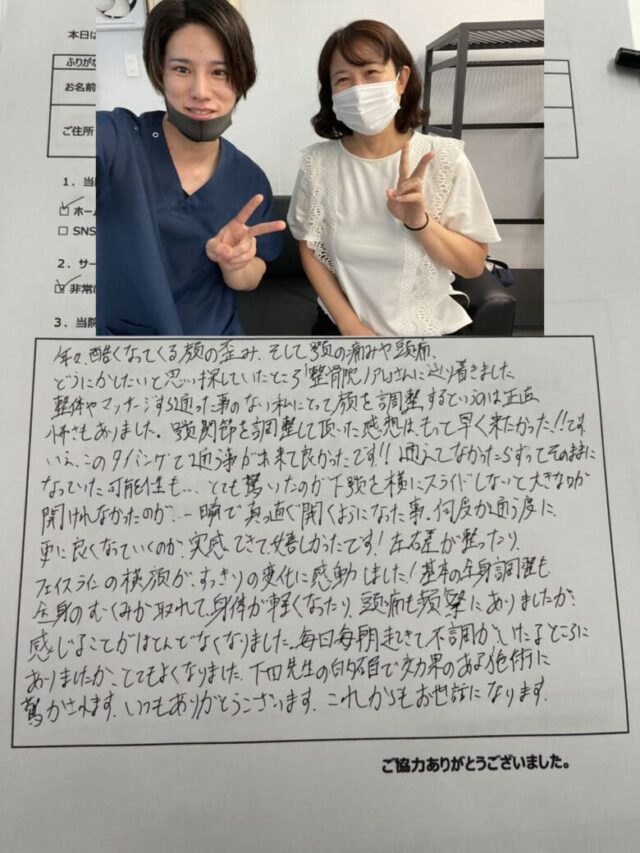 本日は
ふりがな
お名前
ご住所
1．当
ホー
SNS
2．サー
非常に
3．当院
年々、酷くなってくる顔の歪み、そして顎の痛みや頭痛、
どうにかしたいと思い探していたところ「整骨院ノアさんに辿り着きました
整体やマッサージすら通った事のない私にとって顔を調整するというのは正直
怖さもありました。顎関節を調整して頂いた感想は、もって早く来たかった!!です
いえ、このタイミングで通う事が出来て良かったです!!通えてなかったらずってそのままに
なっていた可能性も… とても驚いたのが下顎を横にスライドしないと大きな口が
開けれなかったのが、一瞬で真っ直ぐ開くようになった事。何度か通う度に
更に良くなっていくのが、実感できて嬉しかったです！左右差が整ったり、
フェイスラインの横顔が、すっきりの変化に感動しました！基本の全身調整も
全身のむくみが取れて、身体が軽くなったり、頭痛も頻繁にありましたが、
感じることがほとんどなくなりました。毎日毎朝起きて不調がいたるところに
ありましたが、とてもよくなりました、下田先生の的確で効果のある施術に
驚かされます。いつもありがとうございます。これからもお世話になります。
ご協力ありがとうございました。